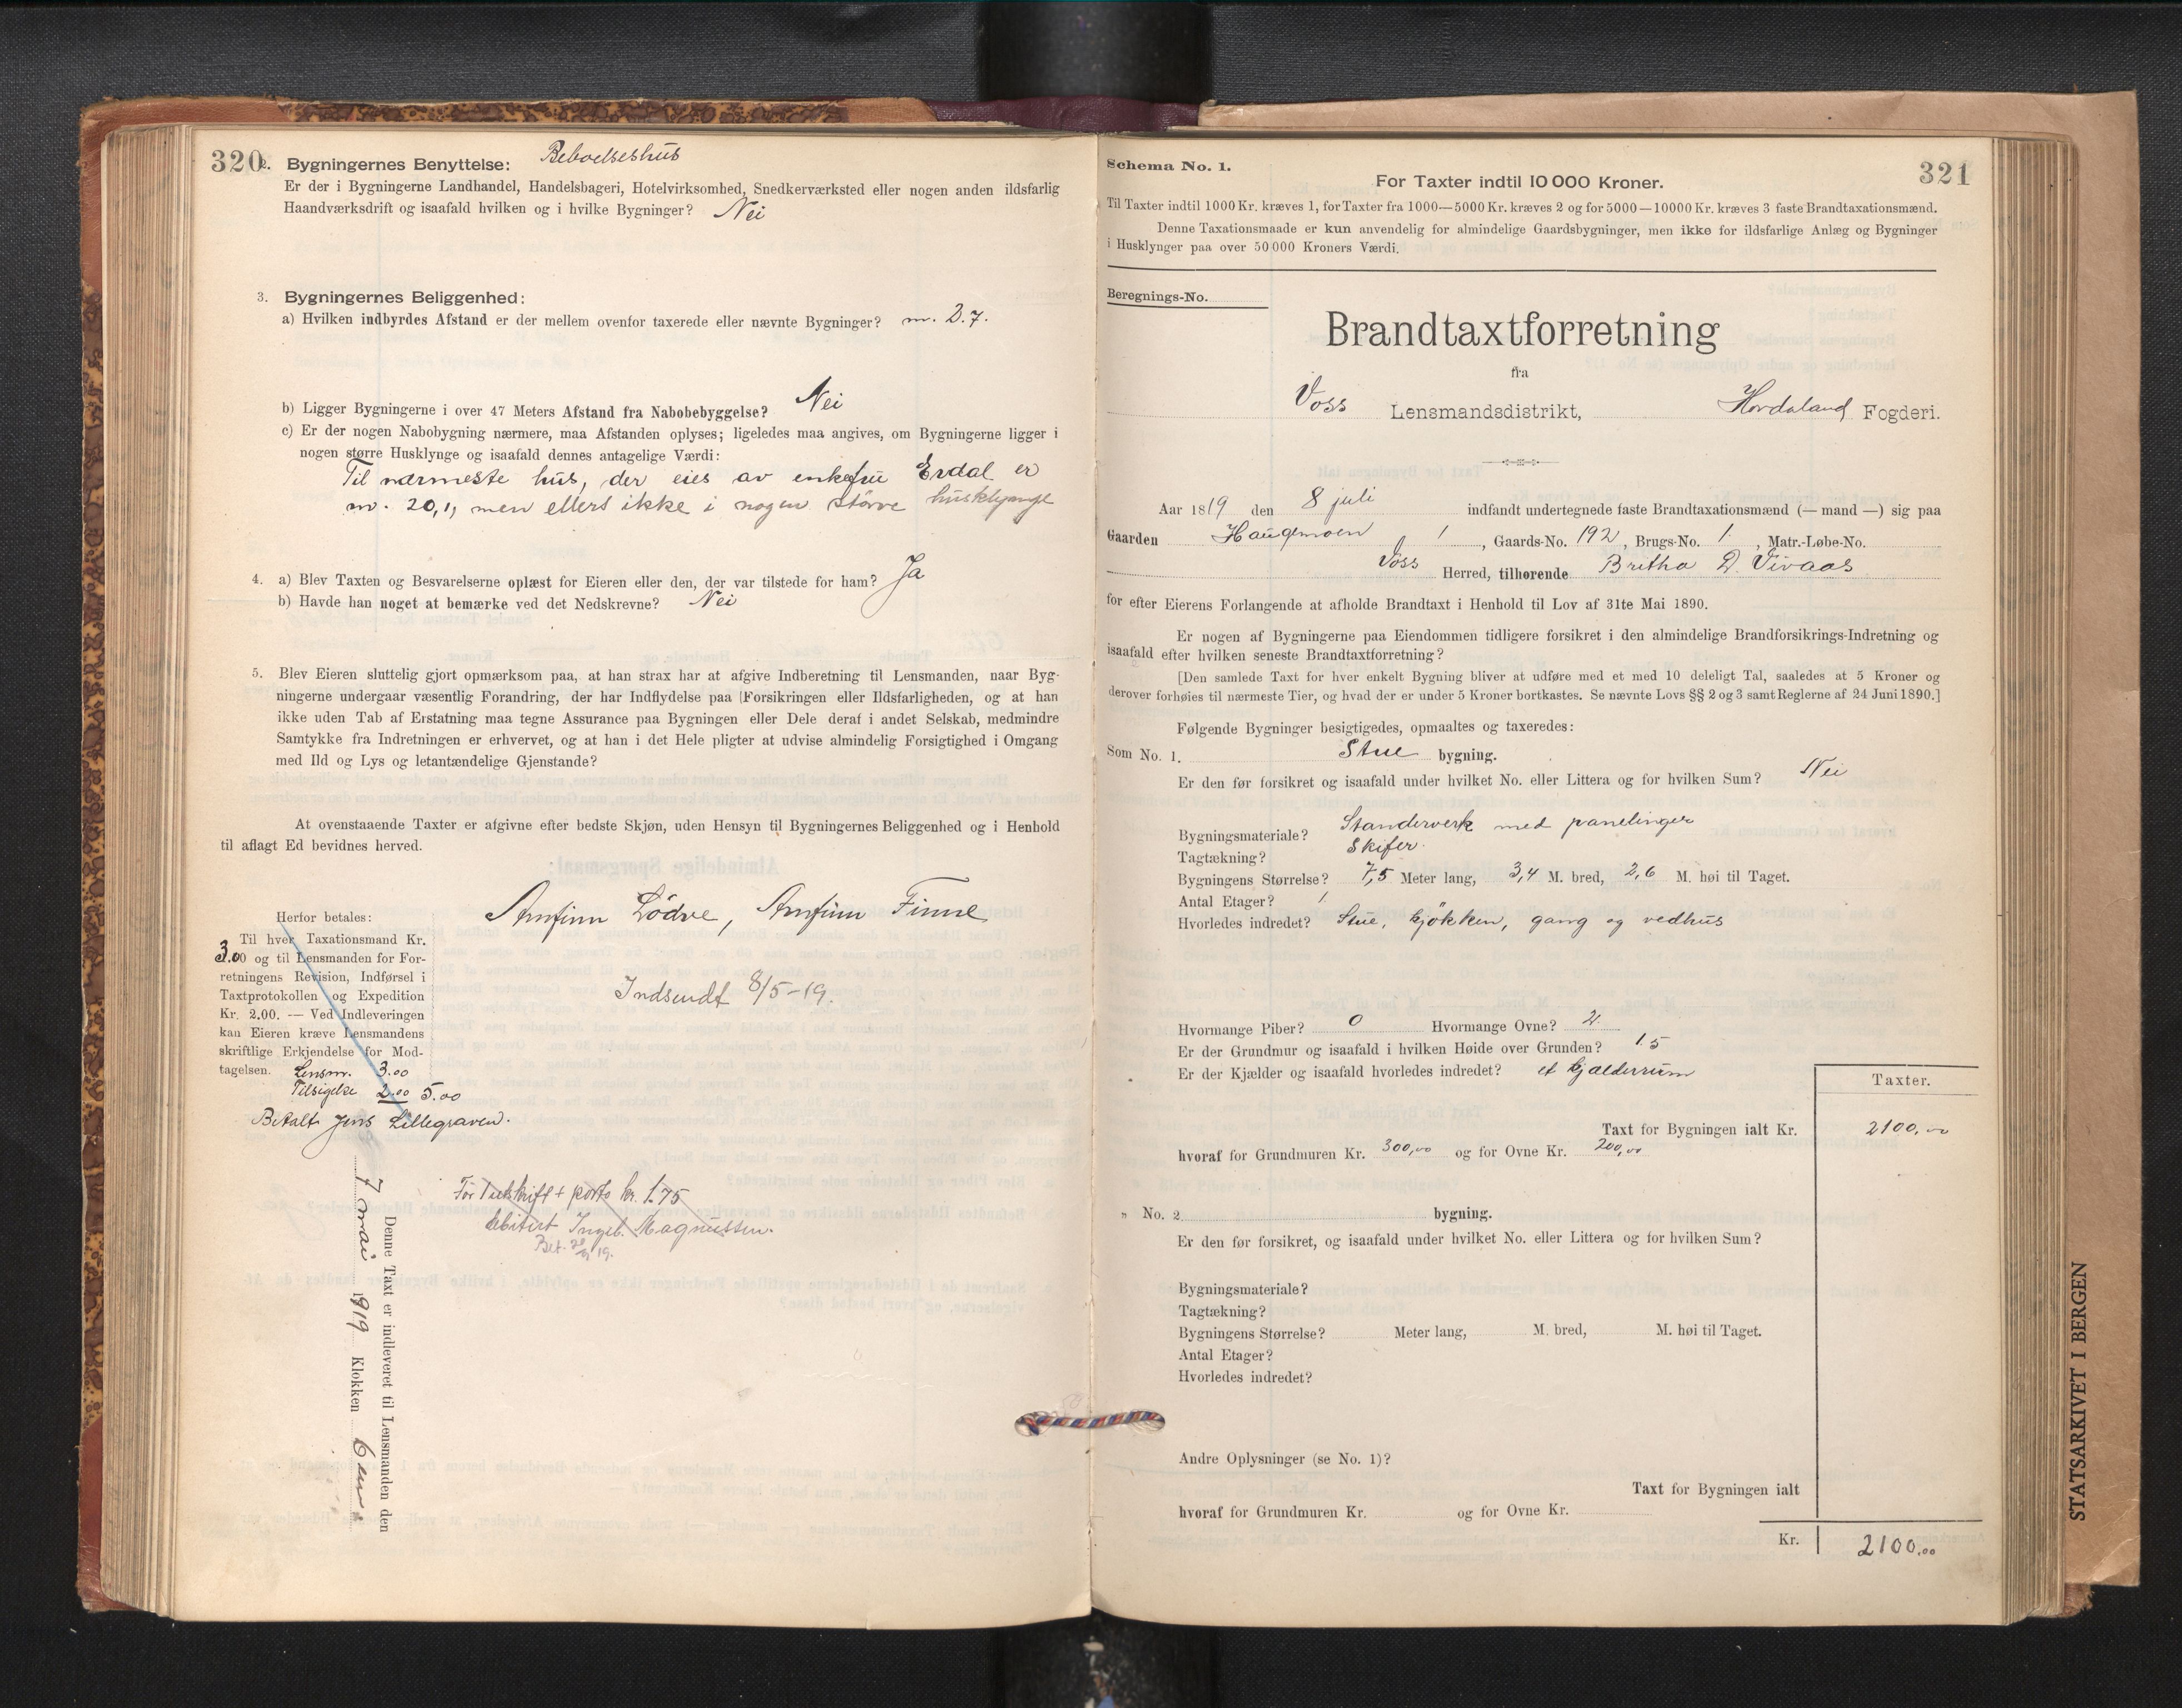 320
2. Bygningernes Benyttelse: Beboelseshus
Er der i Bygningerne Landhandel, Handelsbageri, Hotelvirksomhed, Snedkerværksted eller nogen anden ildsfarlig
Haandværksdrift og isaafald hvilken og i hvilke Bygninger? Nei
3. Bygningernes Beliggenhed:
a) Hvilken indbyrdes Afstand er der mellem ovenfor taxerede eller nævnte Bygninger? m. 2.7.
b) Ligger Bygningerne i over 47 Meters Afstand fra Nabobebyggelse? Nei
c) Er der nogen Nabobygning nærmere, maa Afstanden oplyses; ligeledes maa angives, om Bygningerne ligger i
nogen større Husklynge og isaafald dennes antagelige Værdi:
Til nærmeste hus, der eies av enkefru Erdal er
m. 20,1, men ellers ikke i nogen större husklynge
4. a) Blev Taxten og Besvarelserne oplæst for Eieren eller den, der var tilstede for ham? Ja
b) Havde han noget at bemærke ved det Nedskrevne? Nei
5. Blev Eieren sluttelig gjort opmærksom paa, at han strax har at afgive Indberetning til Lensmanden, naar Byg-
ningerne undergaar væsentlig Forandring, der har Indflydelse paa Forsikringen eller Ildsfarligheden, og at han
ikke uden Tab af Erstatning maa tegne Assurance paa Bygningen eller Dele deraf i andet Selskab, medmindre
Samtykke fra Indretningen er erhvervet, og at han i det Hele pligter at udvise almindelig Forsigtighed i Omgang
med Ild og Lys og letantændelige Gjenstande?
At ovenstaaende Taxter er afgivne efter bedste Skjøn, uden Hensyn til Bygningernes Beliggenhed og i Henhold
til aflagt Ed bevidnes herved.
Arnfinn Lödve, Arnfinn Finne
Herfor betales:
Til hver Taxationsmand Kr.
3.00 og til Lensmanden for For-
retningens Revision, Indførsel i
Taxtprotokollen og Expedition
Kr. 2.00. — Ved Indleveringen
kan Eieren kræve Lensmandens
skriftlige Erkjendelse for Mod-
tagelsen. Lensm. 3.00
Tilsigelse 2.00 5.00
Betalt Jens Lillegraven.
Indsendt 8/5-19.
For utskrift + porto kr. 1.75
debitert Ingeb. Magnussen.
Bet. 19.
Denne Taxt er indleveret til Lensmanden den
7 mai 1919 Klokken 6 em.
321
Schema No. 1.
For Taxter indtil 10 000 Kroner.
Til Taxter indtil 1000 Kr. kræves 1, for Taxter fra 1000—5000 Kr. kræves 2 og for 5000—10000 Kr. kræves 3 faste Brandtaxationsmænd.
Denne Taxationsmaade er kun anvendelig for almindelige Gaardsbygninger, men ikke for ildsfarlige Anlæg og Bygninger
i Husklynger paa over 50 000 Kroners Værdi.
Beregnings-No.
Brandtaxtforretning
fra
Voss Lensmandsdistrikt, Hordaland Fogderi.
Aar 1819 den 8 juli indfandt undertegnede faste Brandtaxationsmænd (— mand —) sig paa
Gaarden Haugmoen 1, Gaards-No. 192, Brugs-No. 1., Matr.-Løbe-No.
Voss Herred, tilhørende Britha D. Vivaas
for efter Eierens Forlangende at afholde Brandtaxt i Henhold til Lov af 31te Mai 1890.
Er nogen af Bygningerne paa Eiendommen tidligere forsikret i den almindelige Brandforsikrings-Indretning og
isaafald efter hvilken seneste Brandtaxtforretning?
[Den samlede Taxt for hver enkelt Bygning bliver at udføre med et med 10 deleligt Tal, saaledes at 5 Kroner og
derover forhøies til nærmeste Tier, og hvad der er under 5 Kroner bortkastes. Se nævnte Lovs §§ 2 og 3 samt Reglerne af 24 Juni 1890.]
Følgende Bygninger besigtigedes, opmaaltes og taxeredes:
Som No. 1. Stue bygning.
Er den før forsikret og isaafald under hvilket No. eller Littera og for hvilken Sum? Nei
Bygningsmateriale? Standerverk med panelinger
Tagtækning? Skifer.
Bygningens Størrelse? 7,5 Meter lang, 3,4 M. bred, 2,6 M. høi til Taget.
Antal Etager? 1
Hvorledes indredet? Stue, kjökken, gang og vedhus
Hvormange Piber? 0 Hvormange Ovne? 2
Er der Grundmur og isaafald i hvilken Høide over Grunden? 1.5
Er der Kjælder og isaafald hvorledes indredet? et kjælderrum
Taxter.
Taxt for Bygningen ialt Kr. 2100,00
hvoraf for Grundmuren Kr. 300,00 og for Ovne Kr. 200,00
" No. 2. bygning.
Er den før forsikret, og isaafald under hvilket No. eller Littera og for hvilken Sum?
Bygningsmateriale?
Tagtækning?
Bygningens Størrelse? Meter lang, M. bred, M. høi til Taget.
Antal Etager?
Hvorledes indredet?
Andre Oplysninger (se No. 1)?
Taxt for Bygningen ialt
hvoraf for Grundmuren Kr. og for Ovne Kr.
Kr. 2100,00
STATSARKIVET I BERGEN